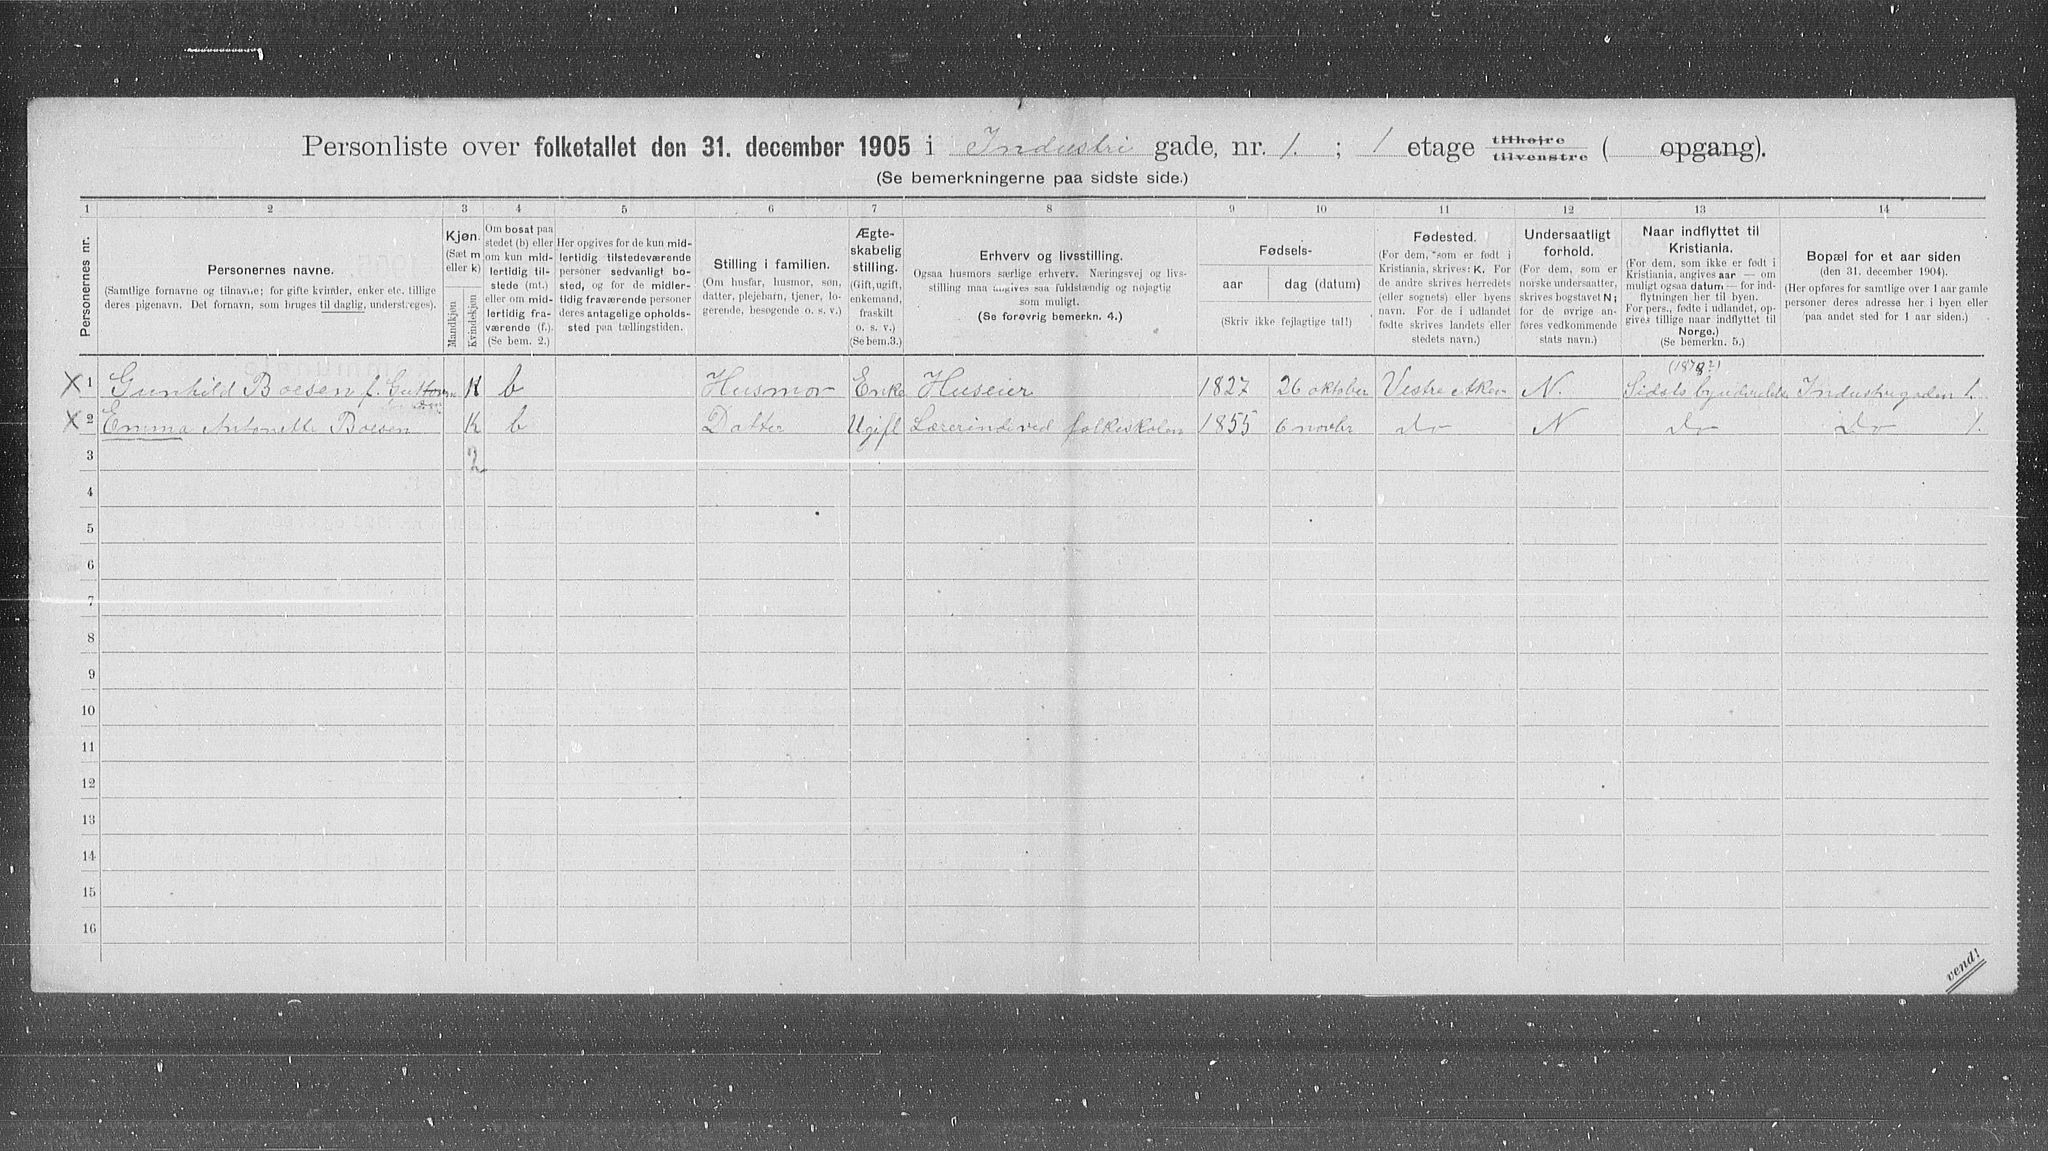 Personliste over folketallet den 31. december 1905 i Industri gade, nr. 1. ; 1 etage tilhøjre tilvenstre ( opgang).
(Se bemerkningerne paa sidste side.)
1 2 3 4 5 6 7 8 9 10 11 12 13 14
Personernes nr.
Personernes navne.
(Samtlige fornavne og tilnavne; for gifte kvinder, enker etc. tillige
deres pigenavn. Det fornavn, som bruges til daglig, understreges).
Kjøn.
(Sæt m
eller k)
Mandkjøn
Kvindekjøn
Om bosat paa
stedet (b) eller
om kun mid-
lertidig til-
stede (mt.)
eller om mid-
lertidig fra-
værende (f.).
(Se bem. 2.)
Her opgives for de kun mid-
lertidig tilstedeværende
personer sedvanlig bo-
sted, og for de midler-
tidig fraværende personer
deres antagelige opholds-
sted paa tællingstiden.
Stilling i familien.
(Om husfar, husmor, søn,
datter, plejebarn, tjener, lo-
gerende, besøgende
o. s. v.)
Ægte-
skabelig
stilling.
(Gift, ugift,
enkemand,
fraskilt
o. s. v.)
(Se bem.3.)
Erhverv og livsstilling.
Ogsaa husmors særlige erhverv. Næringsvej og livs-
stilling maa angives saa fuldstændig og nøjagtig
som muligt.
(Se forøvrig bemerkn. 4.)
Fødsels-
aar dag (datum)
(Skriv ikke fejlagtige tal!)
Fødested.
(For dem, som er født i
Kristiania, skrives: K. For
de andre skrives herredets
(eller sognets) eller byens
navn. For de i udlandet
fødte skrives landets eller
stedets navn.)
Undersaatligt
forhold.
(For dem, som er
norske undersaatter,
skrives bogstavet N;
for de øvrige an-
føres vedkommende
stats navn.)
Naar indflyttet til
Kristiania.
(For dem, som ikke er født i
Kristiania, angives aar — om
muligt ogsaa datum — for ind-
flytningen her til byen.
For pers., fødte i udlandet, op-
gives tillige naar indflyttet til
Norge.)
(Se bemerkn. 5.)
Bopæl for et aar siden
(den 31. december 1904).
(Her opføres for samtlige over 1 aar gamle
personer deres adresse her i byen eller
paa andet sted for 1 aar siden.)
X 1 Gunhild Boesen f. K b Husmor Enke Huseier 1827 26 oktober Vestre Aker N. Industrigaden 1.
X 2 Emma Antonette Boesen K b Datter Ugift Lærerinde ved folkeskolen 1855 6 novbr do N do Do 1.
3 2
4
5
6
7
8
9
10
11
12
13
14
15
16
vend!